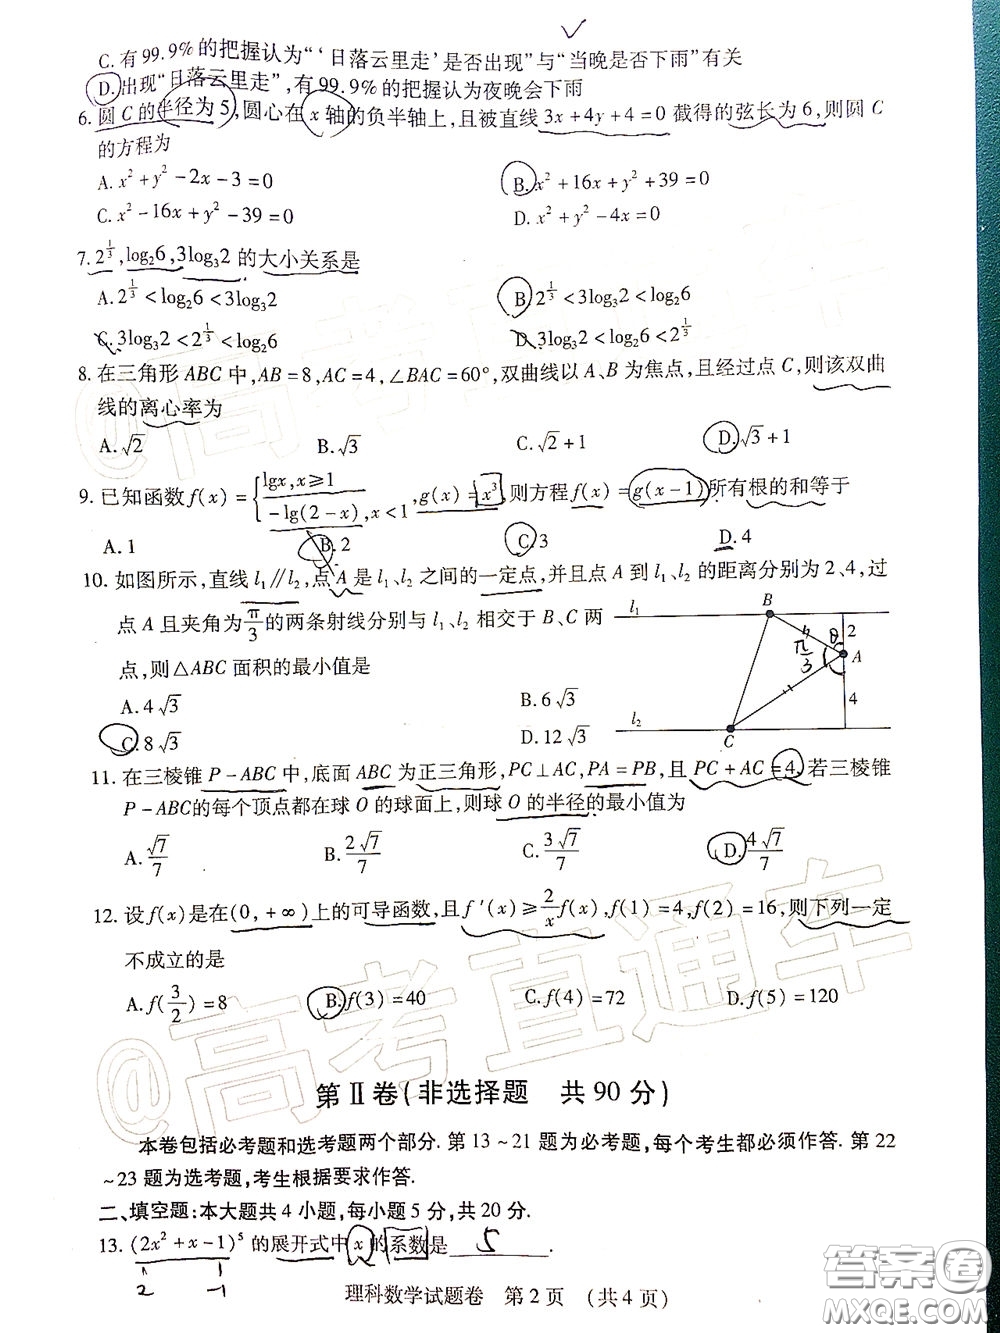 C.有99.9%的把握认为“‘日落云里走’是否出现”与“当晚是否下雨”有关
D.出现“日落云里走”,有99.9%的把握认为夜晚会下雨
6.圆C的半径为5,圆心在x轴的负半轴上,且被直线3x+4y+4=0截得的弦长为6,则圆C
的方程为
A.x²+y²-2x-3=0 B.x²+16x+y²+39=0
C.x²-16x+y²-39=0 D.x²+y²-4x=0
7.2^{1/3},log₂6,3log₃2的大小关系是
A.2^{1/3}<log₂6<3log₃2 B.2^{1/3}<3log₃2<log₂6
C.3log₃2<2^{1/3}<log₂6 D.3log₃2<log₂6<2^{1/3}
8.在三角形ABC中,AB=8,AC=4,∠BAC=60°,双曲线以A、B为焦点,且经过点C,则该双曲
线的离心率为
A.√2 B.√3 C.√2+1 D.√3+1
9.已知函数f(x)={lgx,x≥1
-lg(2-x),x<1 ,g(x)=x³,则方程f(x)=g(x-1)所有根的和等于
A.1 B.2 C.3 D.4
10.如图所示,直线l₁∥l₂,点A是l₁、l₂之间的一定点,并且点A到l₁、l₂的距离分别为2、4,过
点A且夹角为π/3的两条射线分别与l₁、l₂相交于B、C两
点,则△ABC面积的最小值是
A.4√3 B.6√3
C.8√3 D.12√3
l₁ B 2 θ A π/3 4 l₂ C
11.在三棱锥P-ABC中,底面ABC为正三角形,PC⊥AC,PA=PB,且PC+AC=4.若三棱锥
P-ABC的每个顶点都在球O的球面上,则球O的半径的最小值为
A.√7/7 B.2√7/7 C.3√7/7 D.4√7/7
12.设f(x)是在(0,+∞)上的可导函数,且f′(x)≥2/x f(x),f(1)=4,f(2)=16,则下列一定
不成立的是
A.f(3/2)=8 B.f(3)=40 C.f(4)=72 D.f(5)=120
第Ⅱ卷(非选择题 共90分)
本卷包括必考题和选考题两个部分.第13~21题为必考题,每个考生都必须作答.第22
~23题为选考题,考生根据要求作答.
二、填空题:本大题共4小题,每小题5分,共20分.
13.(2x²+x-1)⁵的展开式中x的系数是 5 .
2 -1
理科数学试题卷 第2页 (共4页)
@高考直通车
@高考直通车
答案圈
MXQE.COM